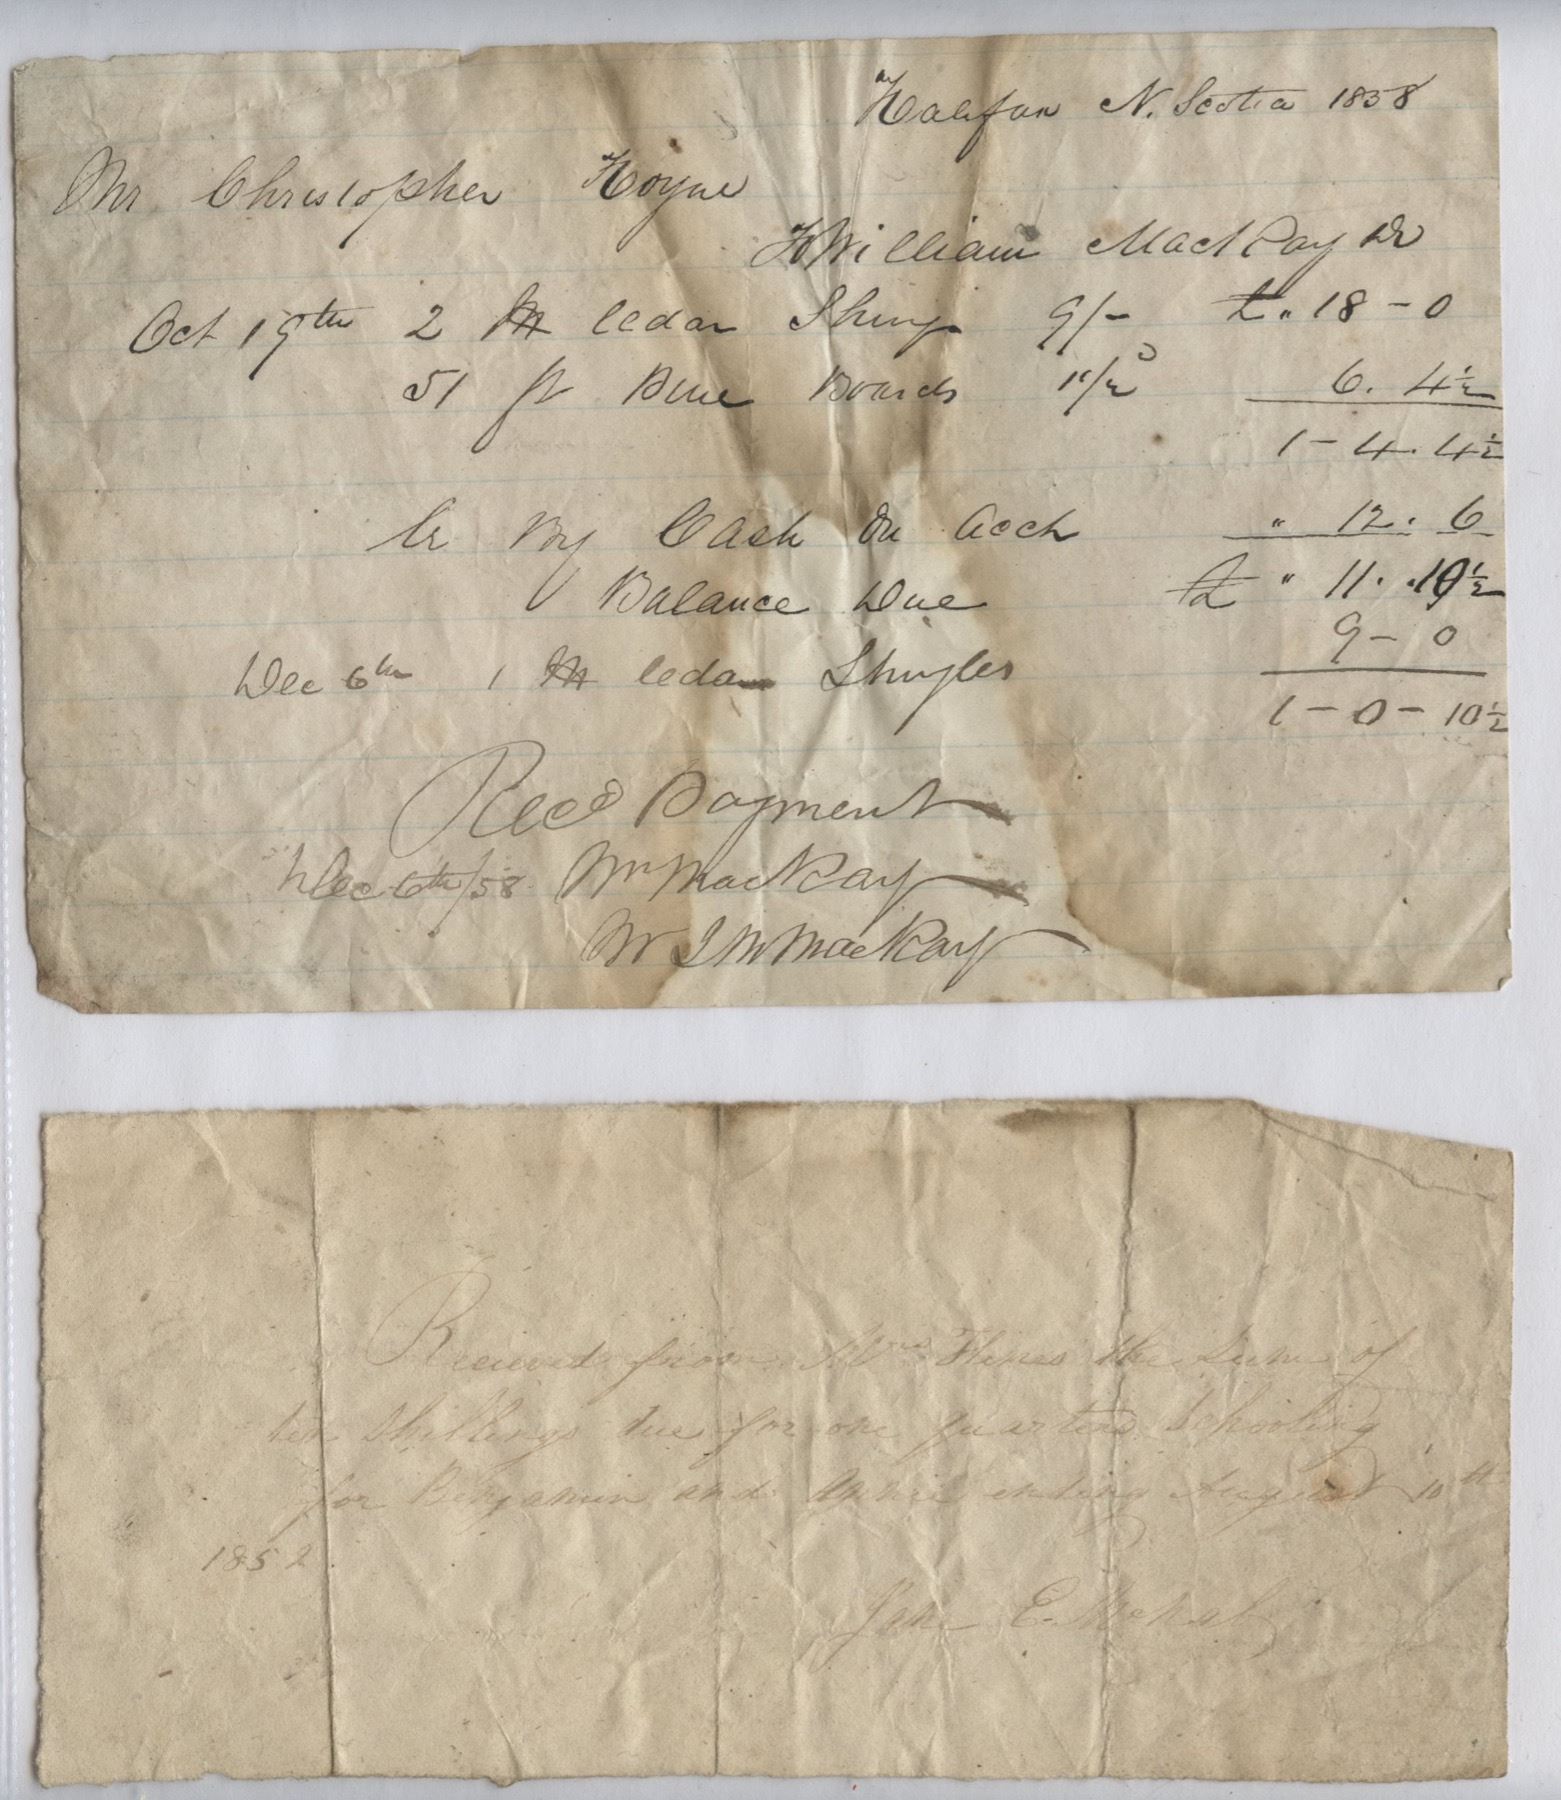 Halifax N. Scotia 1858
Mr Christopher Hoyne
To William MacKay Dr
Oct 19th 2 M Cedar Shing 9/- £ " 18 - 0
51 ft Pine Boards 1½ᴰ 6. 4½
1 - 4. 4½
Cr By Cash On Acct " 12. 6
Balance Due £ " 11. 10½
9 - 0
Dec 6th 1 M Cedar Shingles
1 - 0 - 10½
Recd Payment
Dec 6th/58 Wm MacKay
MacKay
Recieved from Mrs Hines the Sum of
ten Shillings due for one quarters Schooling
for Benjamin and Annie ending August 10th
1852
E.